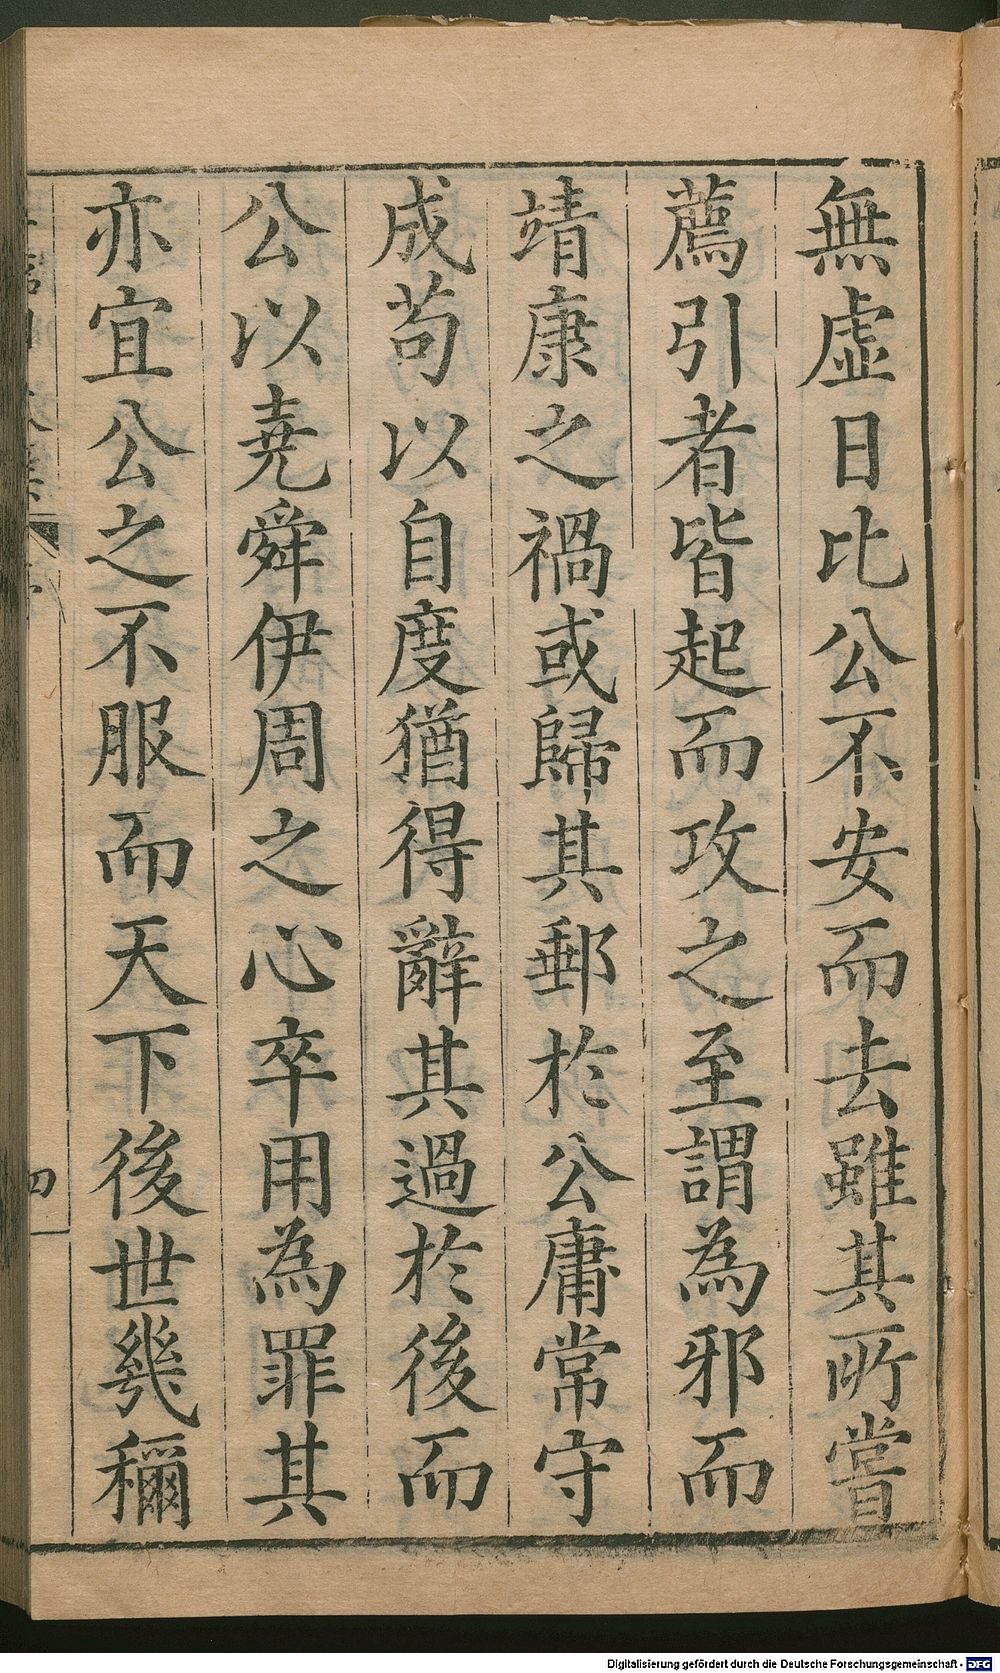 無虛日比公不安而去雖其所嘗
薦引者皆起而攻之至謂為邪而
靖康之禍或歸其郵於公庸常守
成苟以自度猶得辭其過於後而
公以堯舜伊周之心卒用為罪其
亦宜公之不服而天下後世幾稱
四
Digitalisierung gefördert durch die Deutsche Forschungsgemeinschaft - DFG